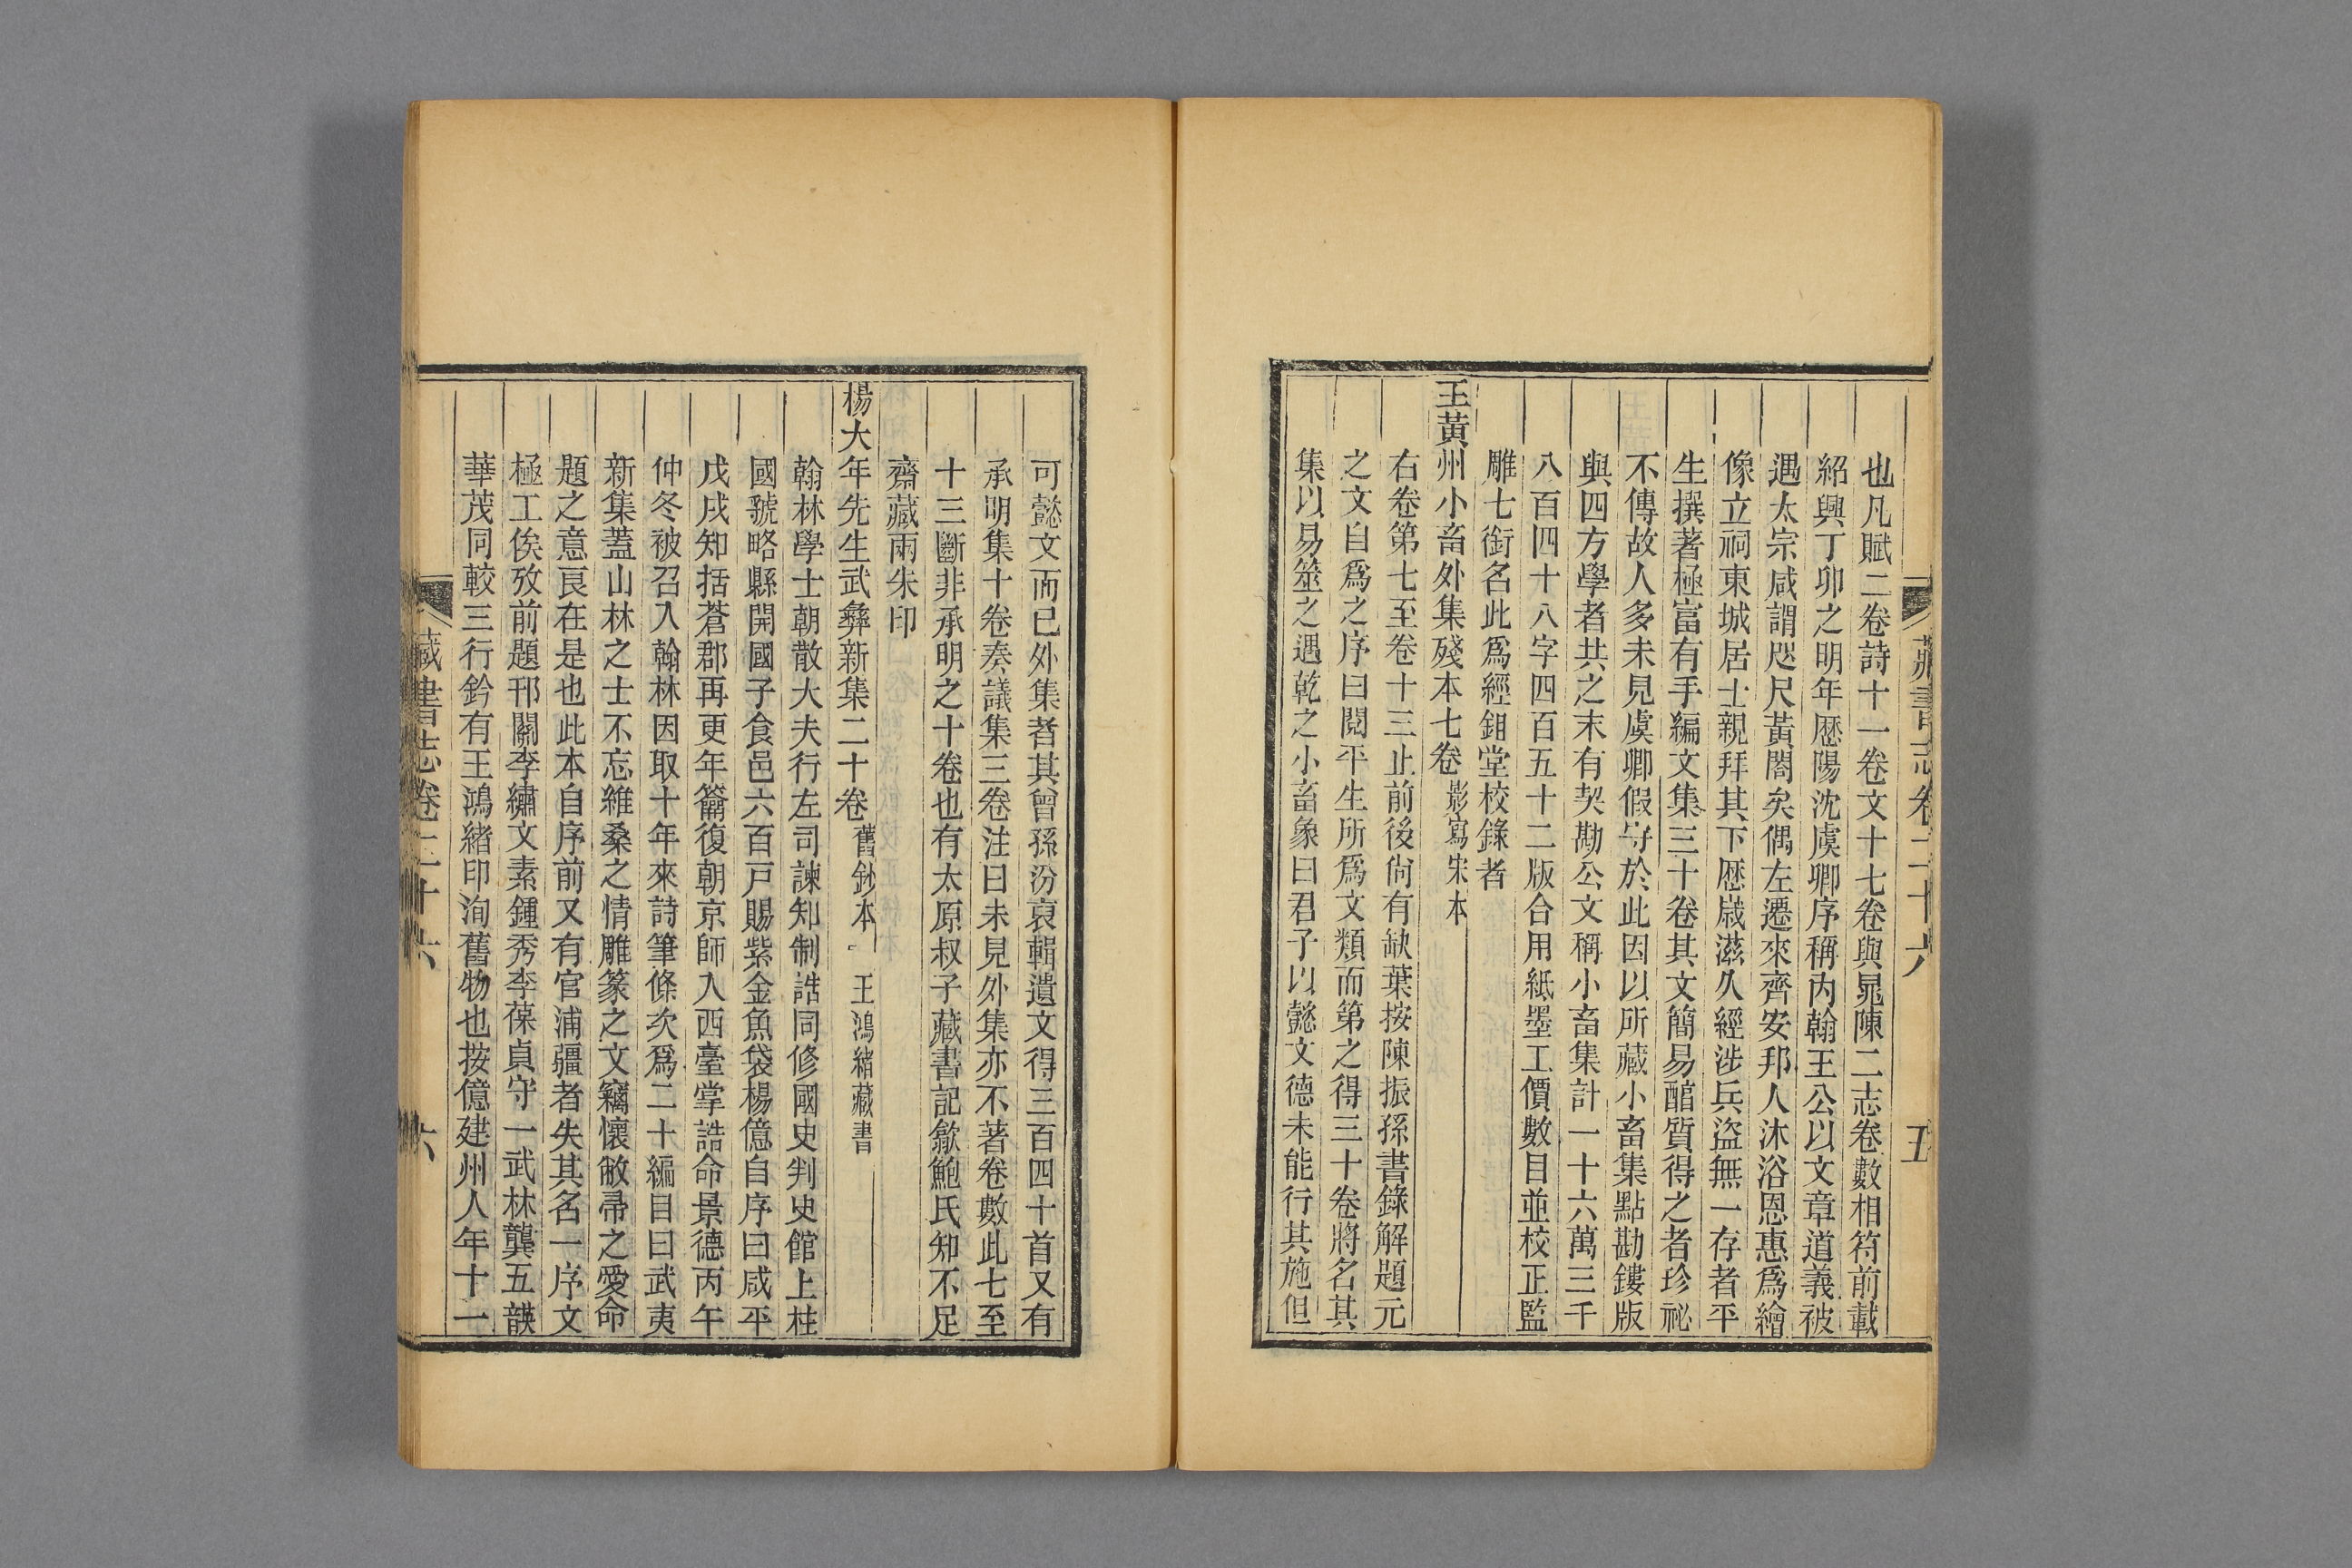 藏書志卷二十六 五
也凡賦二卷詩十一卷文十七卷與晁陳二志卷數相符前載
紹興丁卯之明年歷陽沈虞卿序稱内翰王公以文章道義被
遇太宗咸謂咫尺黃閤矣偶左遷來齊安邦人沐浴恩惠爲繪
像立祠東城居士親拜其下歷歲滋久經涉兵盜無一存者平
生撰著極富有手編文集三十卷其文簡易醇質得之者珍祕
不傳故人多未見虞卿假守於此因以所藏小畜集點勘鏤版
與四方學者共之末有契勘公文稱小畜集計一十六萬三千
八百四十八字四百五十二版合用紙墨工價數目並校正監
雕七銜名此爲經鉏堂校錄者
王黃州小畜外集殘本七卷影寫宋本
右卷第七至卷十三止前後尙有缺葉按陳振孫書錄解題元
之文自爲之序曰閱平生所爲文類而第之得三十卷將名其
集以易筮之遇乾之小畜象曰君子以懿文德未能行其施但
可懿文而已外集者其曾孫汾裒輯遺文得三百四十首又有
承明集十卷奏議集三卷注曰未見外集亦不著卷數此七至
十三斷非承明之十卷也有太原叔子藏書記歙鮑氏知不足
齋藏兩朱印
楊大年先生武彝新集二十卷舊鈔本 王鴻緒藏書
翰林學士朝散大夫行左司諫知制誥同修國史判史館上柱
國虢略縣開國子食邑六百戸賜紫金魚袋楊億自序曰咸平
戊戌知括蒼郡再更年籥復朝京師入西臺掌誥命景德丙午
仲冬被召入翰林因取十年來詩筆條次爲二十編目曰武夷
新集蓋山林之士不忘維桑之情雕篆之文竊懷敝帚之愛命
題之意良在是也此本自序前又有官浦疆者失其名一序文
極工俟攷前題邗關李繡文素鍾秀李葆貞守一武林龔五韺
華茂同較三行鈐有王鴻緒印洵舊物也按億建州人年十一
藏書志卷二十六 六